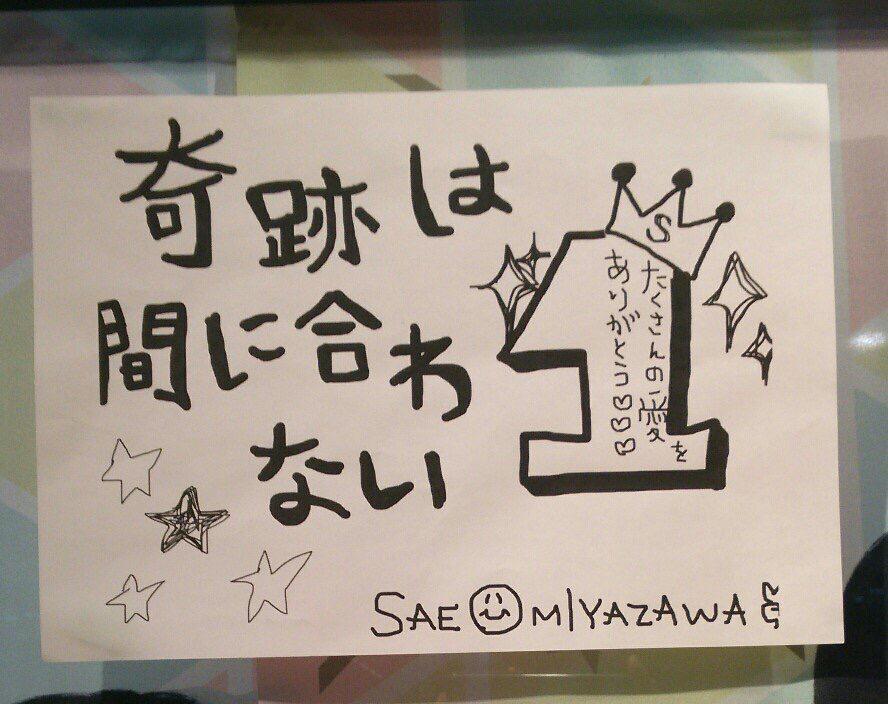 奇跡は
間に合わ
ない
S
たくさんの愛を
ありがとう♡♡♡
SAE☺MIYAZAWA